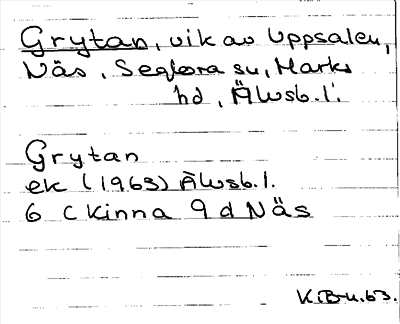 Grytan, vik av Uppsalen,
Näs, Seglora sn, Marks
hd, Älvsb. l.
Grytan
ek (1963) Älvsb. l.
6 C Kinna 9 d Näs
K.Br-u.63.